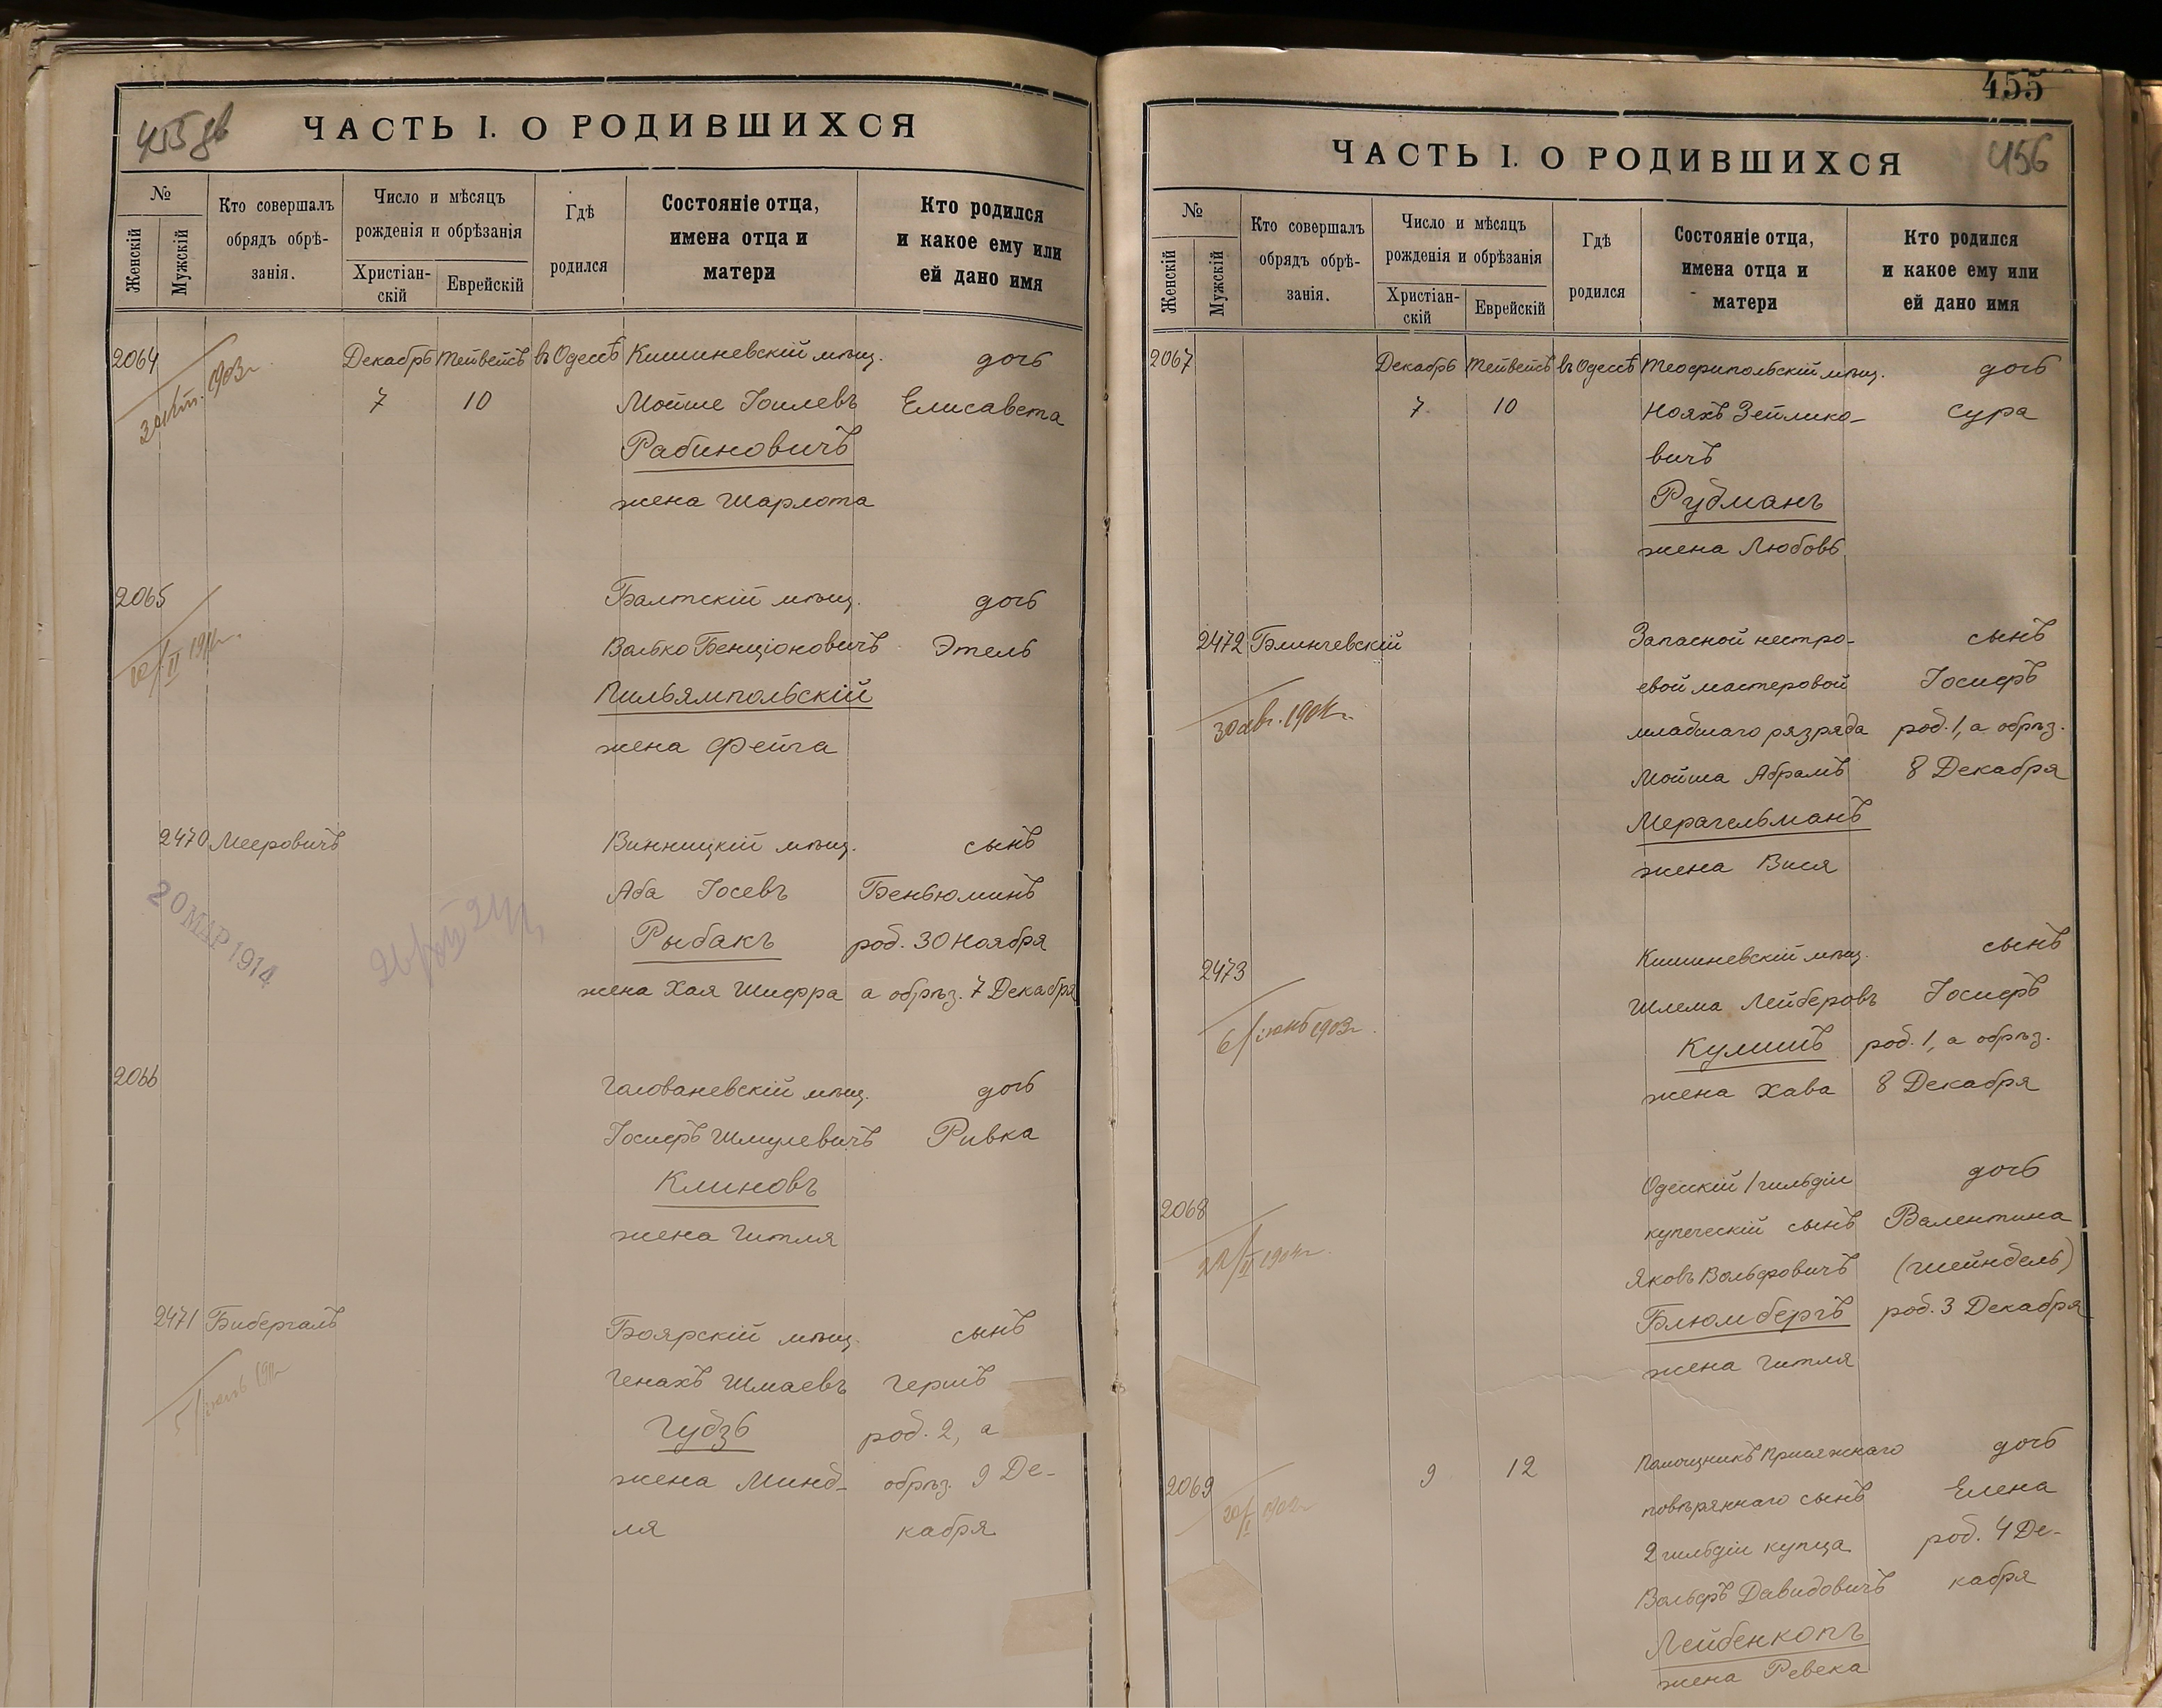 455 об
ЧАСТЬ I. О РОДИВШИХСЯ
№
Женскій
Мужскій
Кто совершалъ
обрядъ обрѣ-
занія.
Число и мѣсяцъ
рожденія и обрѣзанія
Христіан-
скій
Еврейскій
Гдѣ
родился
Состояніе отца,
имена отца и
матери
Кто родился
и какое ему или
ей дано имя
2064 Декабрь Тейвейсъ въ Одессѣ Кишиневскій мѣщ. дочь
7 10 Мойше Іоилевъ Елисавета
Рабиновичъ
жена Шарлота
2065 Балтскій мѣщ. дочь
Волько Бенціоновичъ Этель
Пильямпольскій
жена Фейга
2470 Мееровичъ Винницкій мѣщ. сынъ
Аба Іосевъ Беньюминъ
Рыбакъ род. 30 Ноября
жена Хая Шифра а обрѣз. 7 Декабря
20 МАР 1914
2066 Голованевскій мѣщ. дочь
Іосифъ Шмулевичъ Ривка
Клиновъ
жена Гитля
2471 Бибергалъ Боярскій мѣщ. сынъ
Генахъ Шмаевъ Гершъ
Гудзь род. 2, а
жена Минд- обрѣз. 9 Де-
ля кабря
455
456
ЧАСТЬ I. О РОДИВШИХСЯ
№
Женскій
Мужскій
Кто совершалъ
обрядъ обрѣ-
занія.
Число и мѣсяцъ
рожденія и обрѣзанія
Христіан-
скій
Еврейскій
Гдѣ
родился
Состояніе отца,
имена отца и
матери
Кто родился
и какое ему или
ей дано имя
2067 Декабрь Тейвейсъ въ Одессѣ Теофипольскій мѣщ. дочь
7 10 Нояхъ Зейлико- Сура
вичъ
Рудманъ
жена Любовь
2472 Блинчевскій Запасной нестро- сынъ
евой мастеровой Іосифъ
младшаго разряда род. 1, а обрѣз.
Мойша Абрамъ 8 Декабря
30 авг. 1904г.
Мерагельманъ
жена Вися
2473 Кишиневскій мѣщ. сынъ
Шлема Лейберовъ Іосифъ
6/іюнь 1903г.
Кулишъ род. 1, а обрѣз.
жена Хава 8 Декабря
2068 Одесскій 1 гильдіи дочь
купеческій сынъ Валентина
Яковъ Вольфовичъ (Шейндель)
Блюмбергъ род. 3 Декабря
жена Гитля
2069 9 12 Помощникъ Присяжнаго дочь
повѣреннаго сынъ Елена
2 гильдіи купца род. 4 Де-
Вольфъ Давидовичъ кабря
Лейбенкопъ
жена Ревека